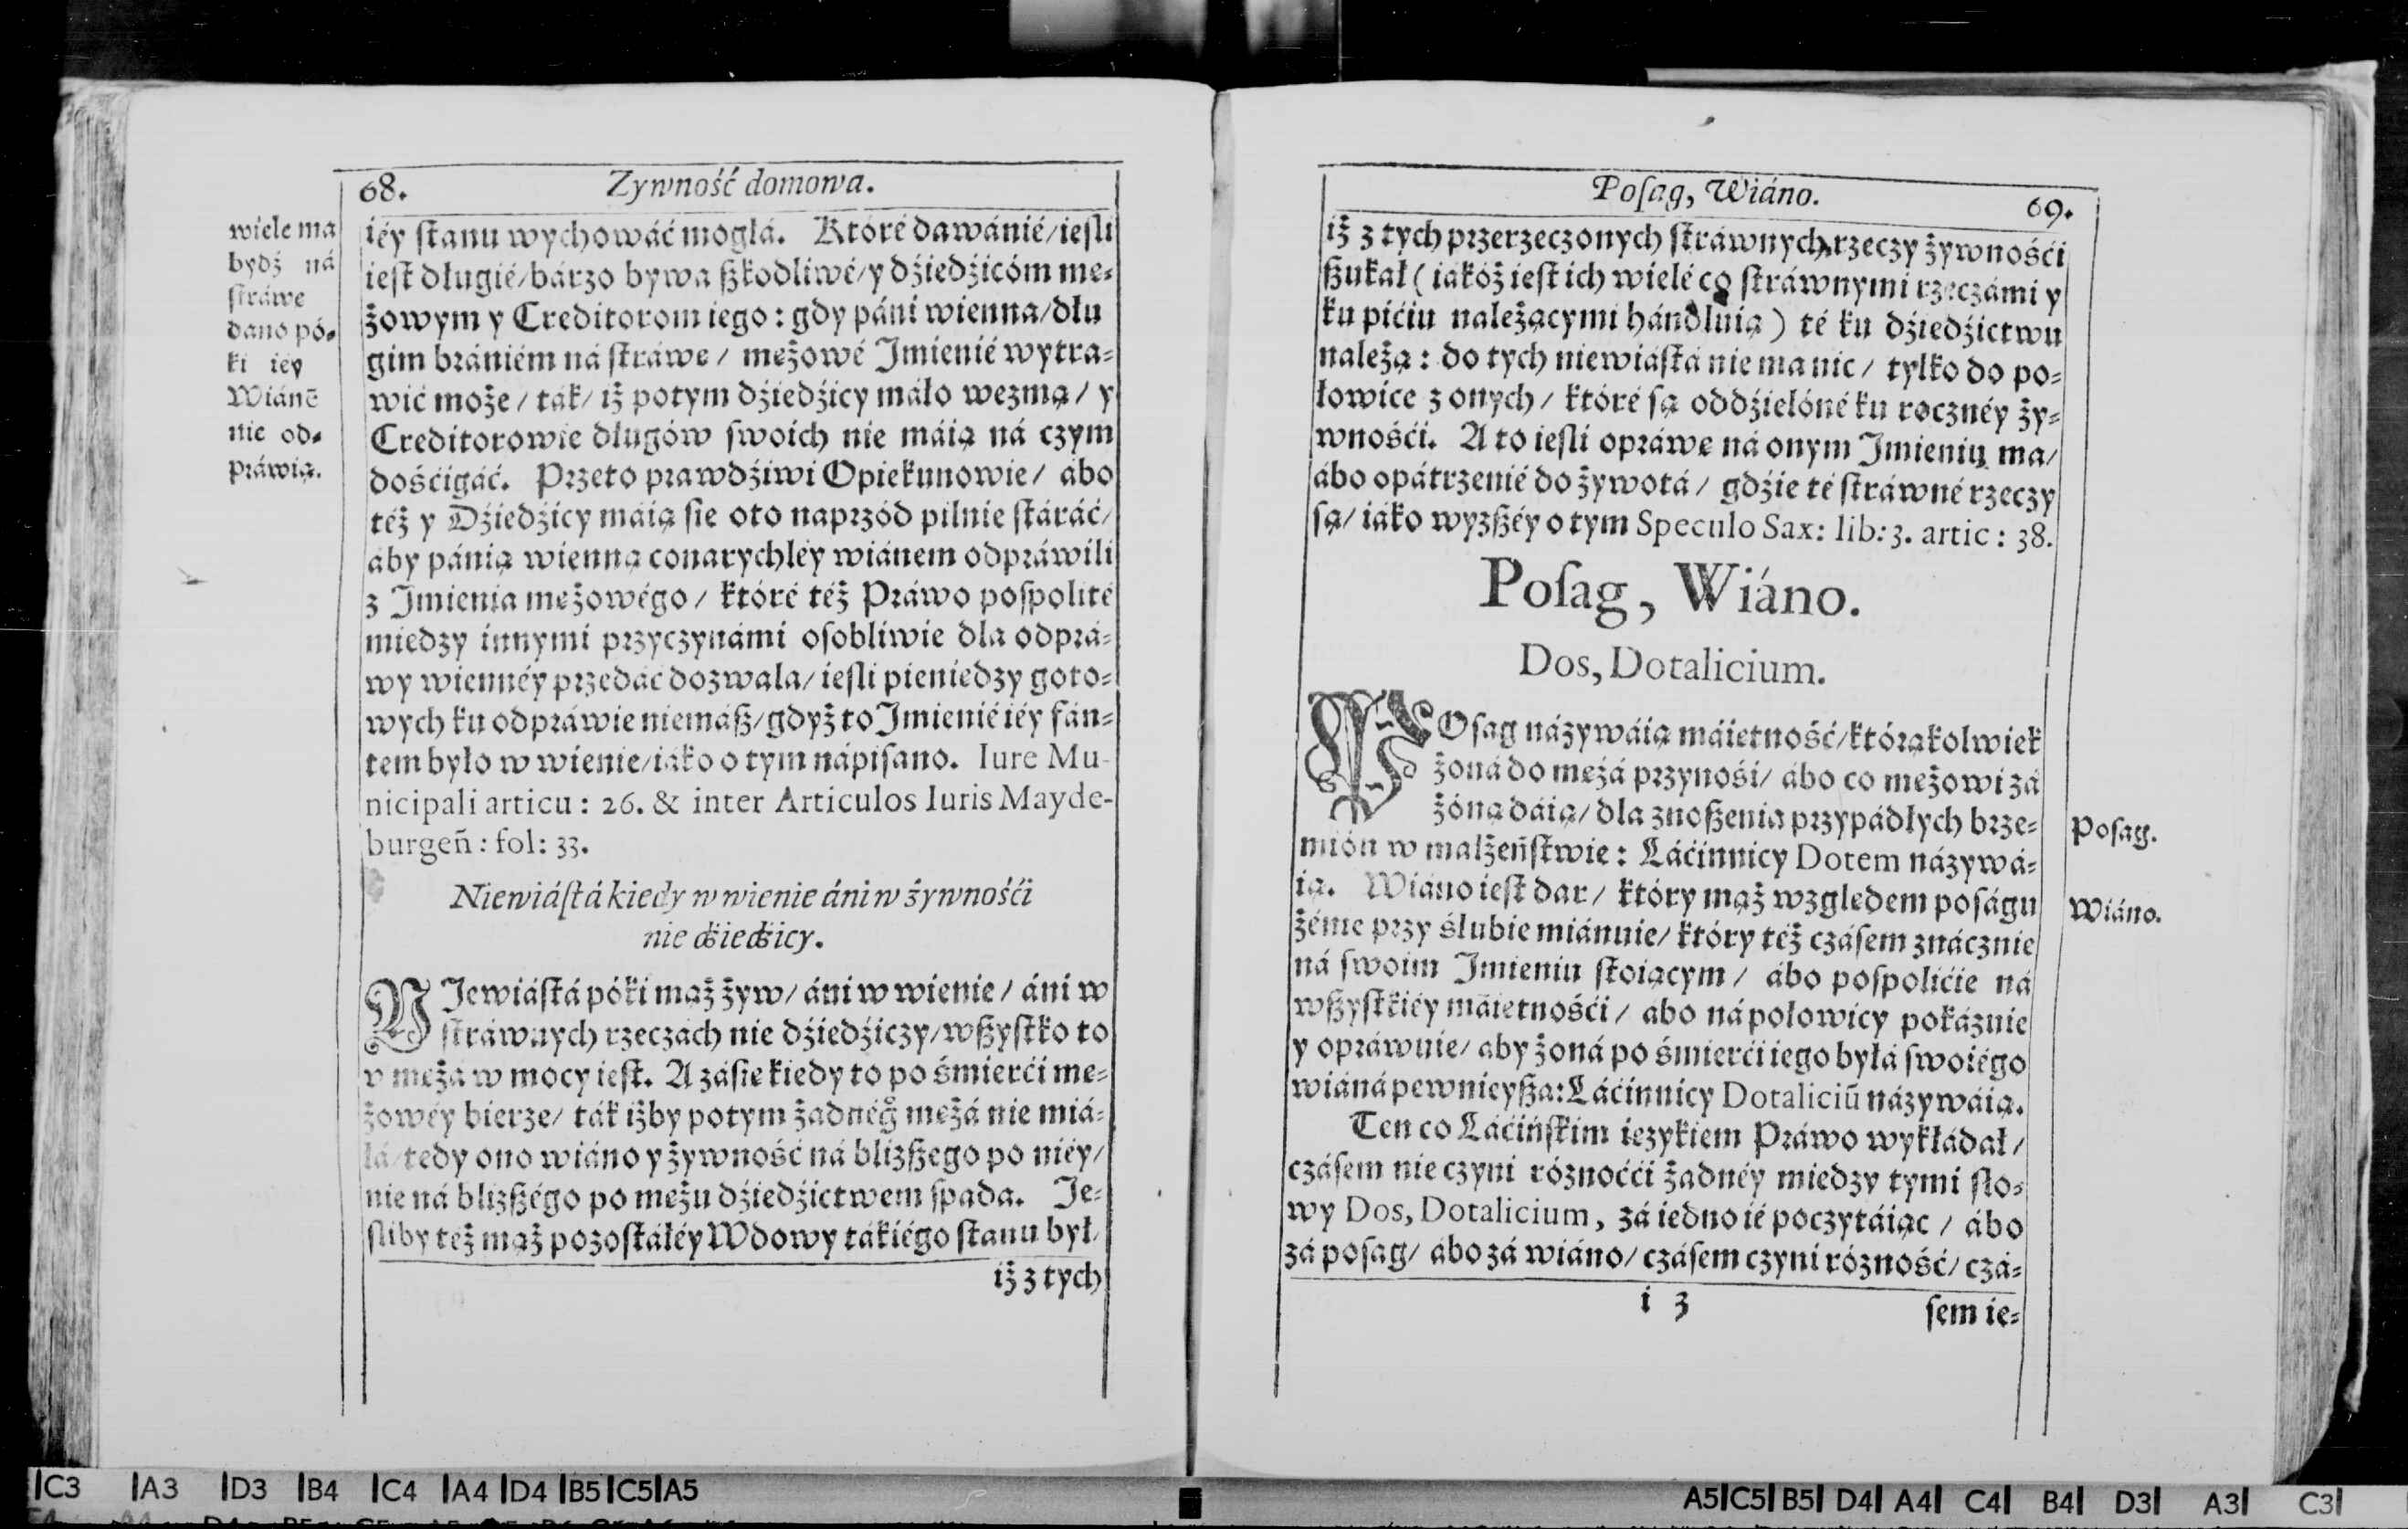 68.
Zywność domowa.
wiele ma
bydź ná
stráwe
dano pó-
ki iéy
Wiánē
nie od-
práwią.
iéy ſtanu wychowáć mogłá. Któré dawánié/ ieſli
ieſt długié/ bárzo bywa ſzkodliwé/ y dźiedźicóm me-
żowym y Creditorom iego: gdy páni wienna/ dłu
gim brániém ná ſtráwe/ mężowé Imienié wytra-
wić może/ ták/ iż potym dźiedźicy máło wezmą/ y
Creditorowie długów ſwoich nie máią ná czym
dośćigáć. Przeto prawdźiwi Opiekunowie/ ábo
téż y Dźiedźicy máią ſie oto naprzód pilnie ſtáráć/
áby pánią wienną conarychléy wiánem odpráwili
z Imienia meżowégo/ któré téż Práwo poſpolité
miedzy innymi przyczynámi oſobliwie dla odprá-
wy wiennéy przedáć dozwala/ ieſli pieniedzy goto-
wych ku odpráwie niemáſz/ gdyż to Imienié iéy fán-
tem było w wienie/ iáko o tym nápiſano. Iure Mu-
nicipali articu: 26. & inter Articulos Iuris Mayde-
burgen̄: fol: 33.
Niewiáſtá kiedy w wienie áni w żywnośći
nie dźiedźicy.
NIewiáſtá póki mąż żyw/ áni w wienie/ áni w
ſtráwnych rzeczách nie dźiedźiczy/ wſzyſtko to
v mężá w mocy ieſt. A záſie kiedy to po śmierći me-
żowéy bierze/ ták iżby potym żadnég̊ mężá nie miá-
łá/ tedy ono wiáno y żywność ná bliżſzego po niéy/
nie ná bliżſzégo po mężu dźiedźictwem ſpada. Ie-
ſliby téż mąż pozoſtáłéy Wdowy tákiégo ſtanu był/
iż z tych
Poſag, Wiáno.
69.
iż z tych przerzeczonych ſtráwnych rzeczy żywnośći
ſzukał (iakóż ieſt ich wielé co ſtráwnymi rzeczámi y
ku pićiu należącymi hándluią) té ku dźiedźictwu
należą: do tych niewiáſtá nie ma nic/ tylko do po-
łowice z onych/ któré ſą oddźielóné ku rocznéy ży-
wnośći. A to ieſli opráwę ná onym Imieniu ma/
ábo opátrzenié do żywotá/ gdźie té ſtráwné rzeczy
ſą/ iáko wyzſzéy o tym Speculo Sax: lib: 3. artic: 38.
Poſag, Wiáno.
Dos, Dotalicium.
POſag názywáią máietność/ którąkolwiek
żoná do mężá przynośi/ ábo co mężowi zá
żóną dáią/ dla znoſzenia przypádłych brze-
mión w małżeńſtwie: Łáćinnicy Dotem názywá-
ią. Wiáno ieſt dar/ który mąż względem poságu
żénie przy ślubie miánuie/ który téż czáſem znácznie
ná ſwoim Imieniu ſtoiącym/ ábo poſpolićie ná
wſzyſtkiéy máietnośći/ abo ná połowicy pokáznie
y opráwuie/ aby żoná po śmierći iego byłá ſwoiégo
wiáná pewnieyſza: Łáćinnicy Dotaliciū názywáią.
Ten co Łáćińſkim iezykiem Práwo wykłádał/
czáſem nie czyni róznoćći żadnéy miedzy tymi ſło-
wy Dos, Dotalicium, zá iedno ié poczytáiąc/ ábo
zá poſag/ ábo zá wiáno/ czáſem czyni rózność/ czá-
i 3
ſem ie-
Poſag.
Wiáno.
C3 A3 D3 B4 C4 A4 D4 B5 C5 A5
A5 C5 B5 D4 A4 C4 B4 D3 A3 C3